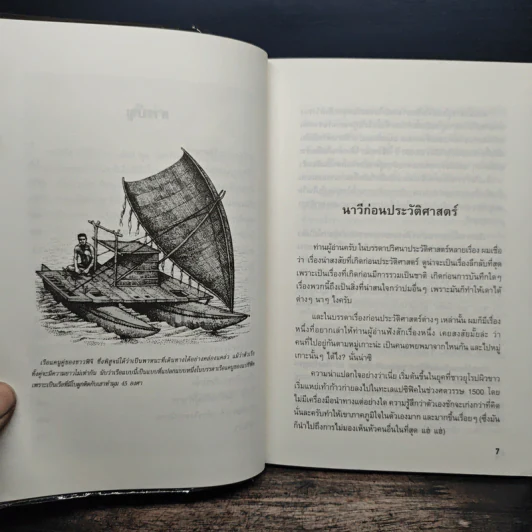 เรือแคนูคู่ของชาวฟิจิ ซึ่งพิสูจน์ได้ว่าเป็นพาหนะที่เดินทางได้อย่างคล่องแคล่ว แม้ว่าตัวเรือ
เพราะเป็นเรือที่มี
45 องศา
นาวีก่อนประวัติศาสตร์
ท่านผู้อ่านครับ ในบรรดาปริศนาประวัติศาสตร์หลายเรื่อง ผมเชื่อ
ว่า เรื่องน่าสงสัยที่เกิดก่อนประวัติศาสตร์ ดูน่าจะเป็นเรื่องลึกลับที่สุด
เพราะเป็นเรื่องที่เกิดก่อนมีการรวมเป็นชาติ เกิดก่อนการบันทึกใดๆ
เรื่องพวกนี้ถึงเป็นสิ่งที่น่าสนใจกว่าปมอื่นๆ เพราะมันก็ทำให้เราได้
ต่างๆ นาๆ ไงครับ
และในบรรดาเรื่องก่อนประวัติศาสตร์ต่างๆ เหล่านั้น ผมก็มีเรื่อง
หนึ่งที่อยากเล่าให้ท่านผู้อ่านฟังสักเรื่องหนึ่ง เคยสงสัยมั้ยล่ะ ว่า
คนที่ไปอยู่กันตามหมู่เกาะน่ะ เป็นคนอพยพมาจากไหนกัน และไปหมู่
เกาะนั้นๆ ได้ไง? นั่นน่าซี
ความน่าแปลกใจอย่างว่าเนี่ย เริ่มต้นขึ้นในยุคที่ชาวยุโรปผิวขาว
เริ่มแหย่เท้าก้าวก่ายลงไปในทะเลแปซิฟิคในช่วงศตวรรษ 1500 โดย
ไม่มีเครื่องมือนำทางแต่อย่างใด ความรู้สึกว่าตัวเองชักจะเก่งกว่าที่คิด
นั่นละครับทำให้เขาภาคภูมิใจในตัวเองมาก และมากขึ้นเรื่อยๆ (ซึ่งมัน
ก็นำไปถึงการไม่มองเห็นหัวคนอื่นในที่สุด แฮ่ แฮ่)
7